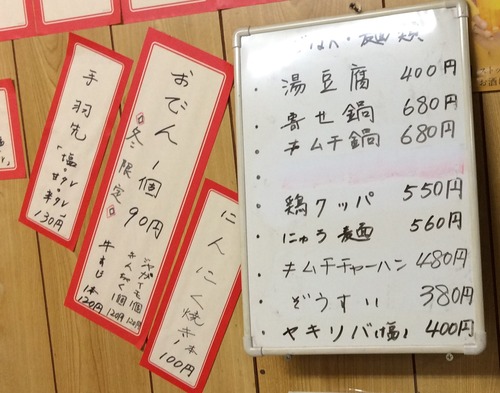 手羽先
・塩・甘タレ
・辛タレ
130円
おでん 1個 90円
冬限定
じゃがいも 1個 120円
きんちゃく 1個 120円
牛すじ 1本 120円
にんにく焼き 1本
100円
・湯豆腐 400円
・寄せ鍋 680円
・キムチ鍋 680円
・鶏クッパ 550円
・にゅう麺 560円
・キムチチャーハン 480円
・ぞうすい 380円
・ヤキソバ(塩) 400円